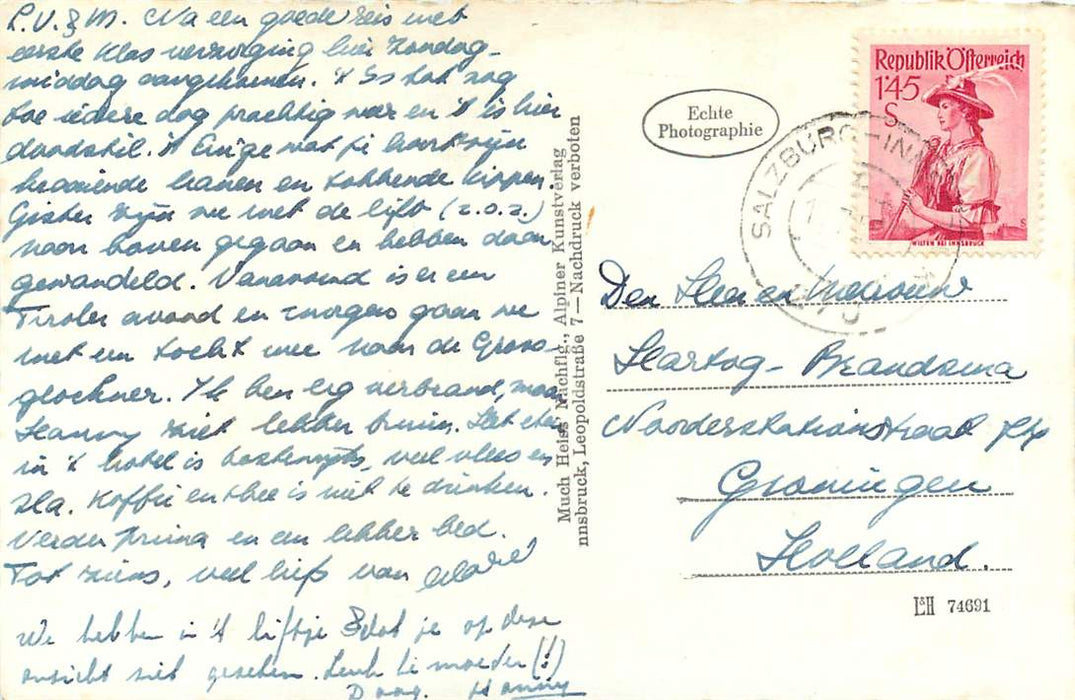 L.V. & M. Na een goede reis met
eerste klas verzorging hier Zondag-
middag aangekomen. 't Is tot nog
toe iedere dag prachtig weer en 't is hier
doodstil. 't Enige wat je hoort zijn
kraaiende hanen en tokkende kippen.
Gister zijn we met de lift (z.o.z.)
naar boven gegaan en hebben daar
gewandeld. Vanavond is er een
Tiroler avond en morgen gaan we
met een tocht mee naar de Gross-
glockner. Ik ben erg verbrand, maar
Hanny ziet lekker bruin. Het eten
in 't hotel is veel vlees en
sla. Koffie en thee is niet te drinken.
Verder prima en een lekker bed.
Tot ziens, veel liefs van
We hebben in 't liftje dat je op deze
ansicht ziet gezeten. Leuk hè moeder (!)
Daag. Hanny
Much Heiss Nachflg., Alpiner Kunstverlag
nnsbruck, Leopoldstraße 7 — Nachdruck verboten
Echte
Photographie
Republik Österreich
1'45
S
WILTEN BEI INNSBRUCK
SALZBURG-INN
Den Heer en Mevrouw
Hartog-Brandsma
Noorderstationstraat
Groningen
Holland.
L&H 74691